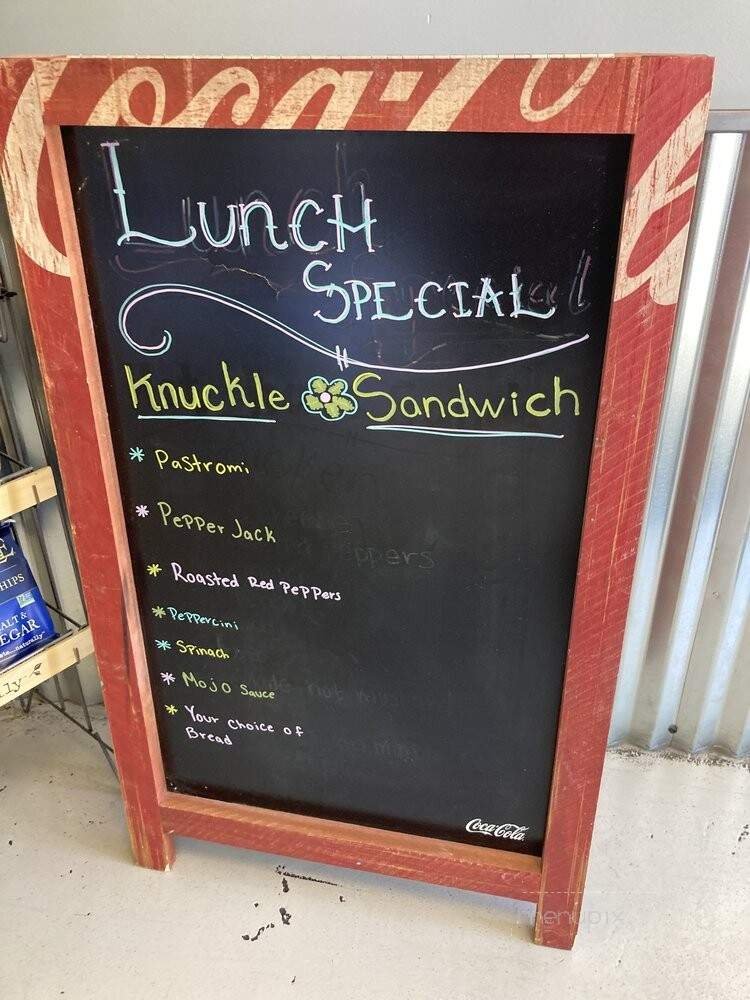 Coca-Co
Lunch
Special
Knuckle Sandwich
* Pastromi
* Pepper Jack
* Roasted Red Peppers
* Peppercini
* Spinach
* Mojo Sauce
* Your Choice of
Bread
Coca-Cola
HIPS
ALT &
EGAR
menupix